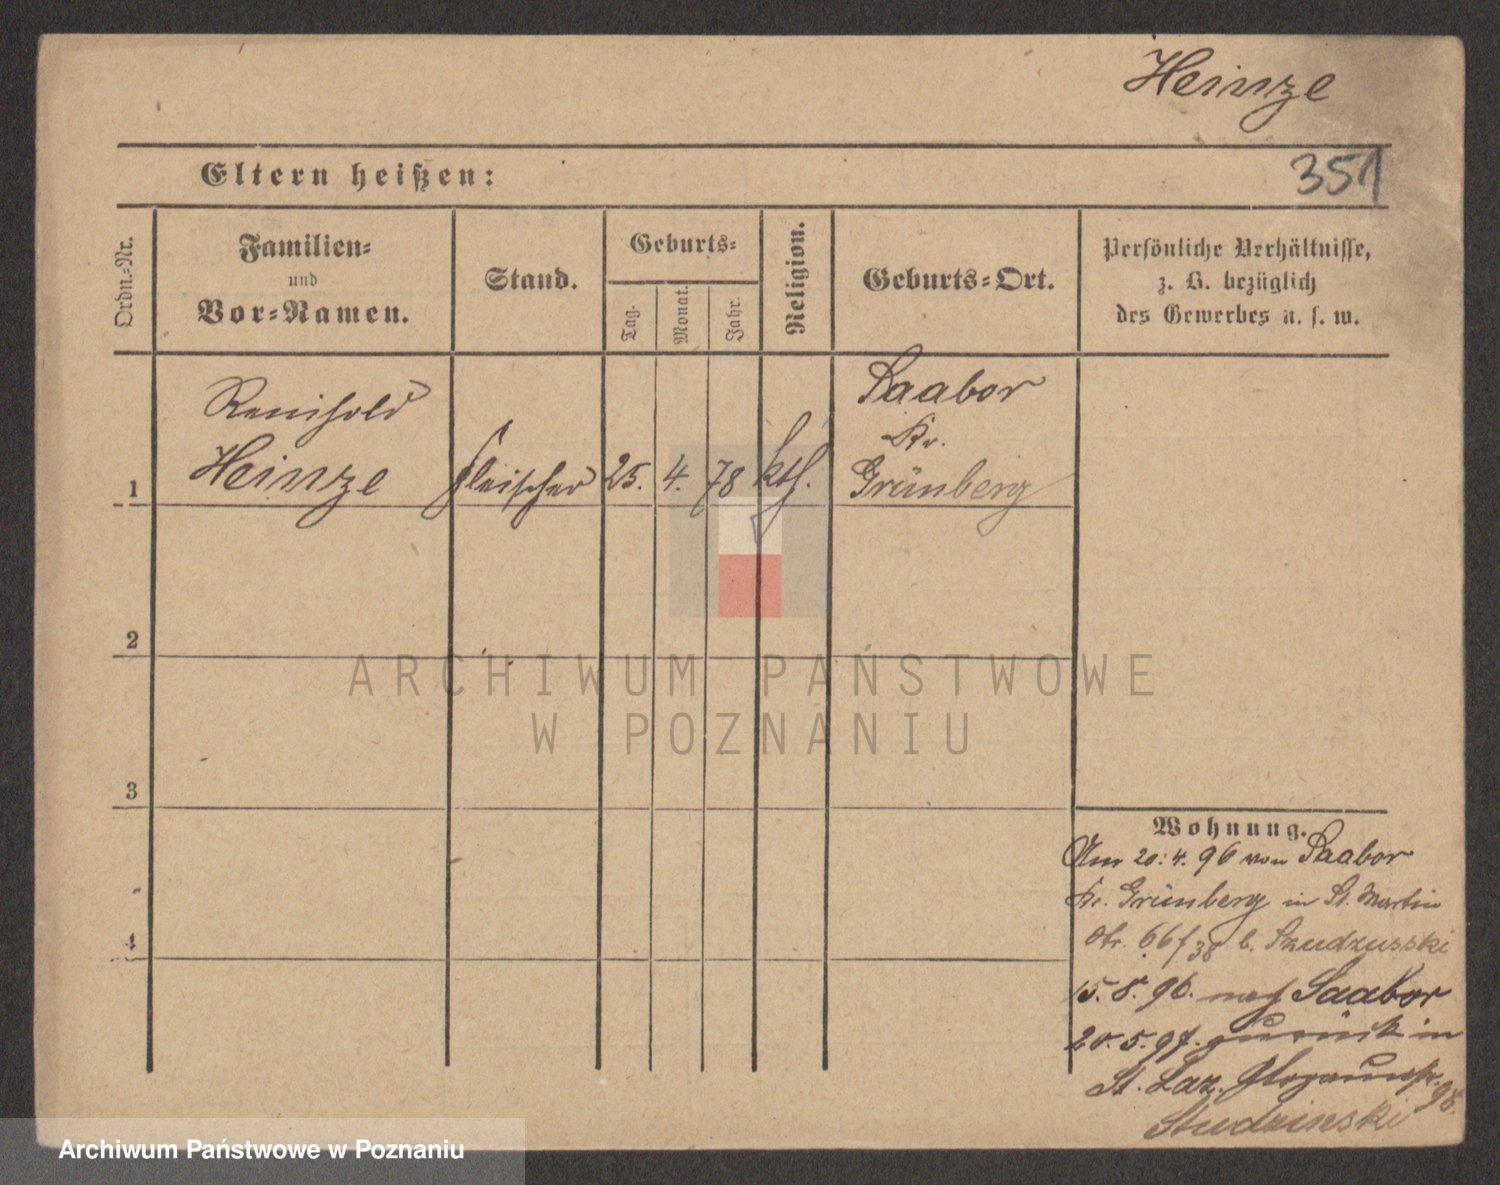 Heinze
Eltern heißen:
351
Ordn.-Nr.
Familien-
und
Vor-Namen.
Stand.
Geburts-
Tag.
Monat.
Jahr.
Religion.
Geburts-Ort.
Persönliche Verhältnisse,
z. B. bezüglich
des Gewerbes u. s. w.
Reinhold
Heinze
Fleischer
25.
4.
78
kth.
Saabor
Kr.
Grünberg
1
2
3
4
Wohnung.
Am 20.4.96 von Saabor
Kr. Grünberg in St. Martin
Str. 66/38 b.
15.8.96. nach Saabor
20.5.97. zurück in
St. Laz. Glogauerstr. 98.
Studzinski
ARCHIWUM PAŃSTWOWE
W POZNANIU
Archiwum Państwowe w Poznaniu